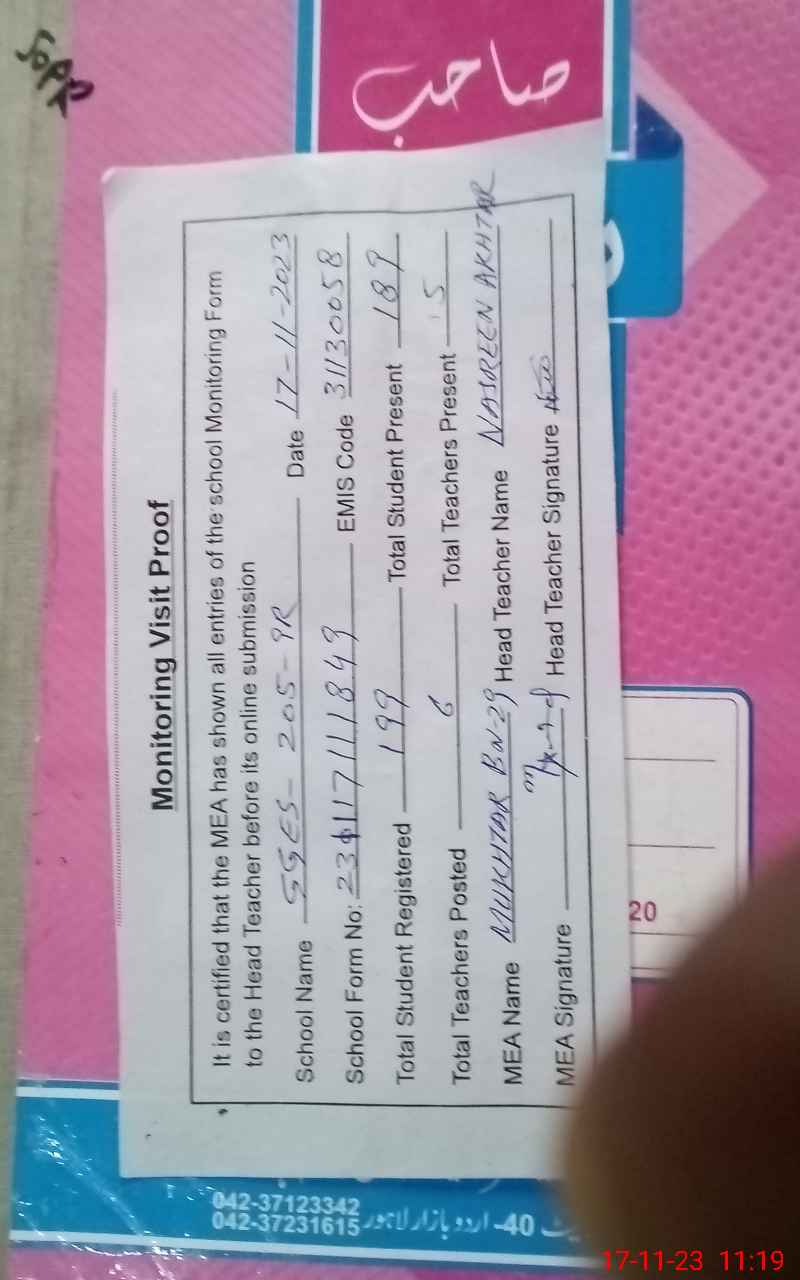 صاحب
Monitoring Visit Proof
It is certified that the MEA has shown all entries of the school Monitoring Form
to the Head Teacher before its online submission
School Name GGES - 205-9R Date 17-11-2023
School Form No: 231117111849 EMIS Code 31130058
Total Student Registered 199 Total Student Present 189
Total Teachers Posted 6 Total Teachers Present 5
MEA Name MUKHTAR BN-29 Head Teacher Name NASREEN AKHTAR
MEA Signature Head Teacher Signature
20
40- اردو بازار لاہور
042-37123342
042-37231615
17-11-23 11:19